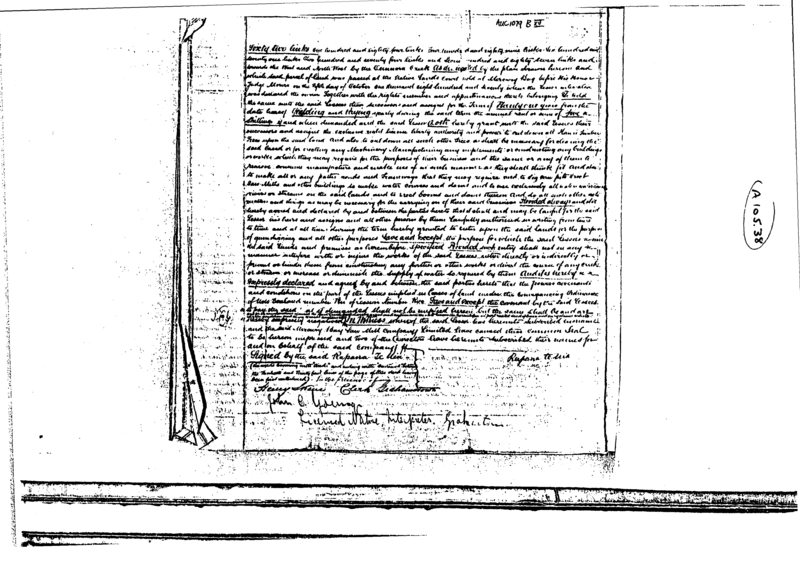 AUG 1079 B
Forty two links one hundred and eighty four links Four hundred and eighty nine links Six hundred and
seventy one links two hundred and seventy four links and Seven hundred and eighty seven links and
towards the West and North West by the Omahu Creek As delineated by the plan drawn hereon and
which said parcel of land was passed at the Native Lands Court held at Mercury Bay before His Honor
Judge Monro on the fifth day of October One thousand eight hundred and Seventy when the Lessor
was declared the owner Together with the rights members and appurtenances thereto belonging To hold
the same unto the said Lessees their successors and assigns for the Term of Ninety one years from the
date hereof Yielding and Paying yearly during the said term the annual rent or sum of
Shillings if and when demanded and the said Lessor doth hereby grant unto the said Lessees their
successors and assigns the exclusive right license liberty authority and power to cut down all
Trees upon the said land And also to cut down all such other Trees as shall be necessary for clearing the
said land or for erecting any Machinery Manufacturing any implements or constructing any buildings
or works which they may require for the purposes of their business and the same or any of them to
remove convert manufacture and make use of in such manner as they shall think fit And also
to make all or any paths roads and Tramways that they may require and to dig saw pits erect
Saw Mills and other buildings to make water courses and dams and to use exclusively all
rivers or streams on the said lands and to erect booms and dams thereon And do all such other acts
matters and things as may be necessary for the carrying on of their said business Provided always and it is
hereby agreed and declared by and between the parties hereto that it shall and may be lawful for the said
Lessor his heirs and assigns and all other persons by them lawfully authorised in writing from time
to time and at all times during the term hereby granted to enter upon the said lands for the purpose
of gumdigging and all other purposes Save and except the purpose for which the said Lessees
the said lands and premises as hereinbefore specified Provided such entry shall not in any
manner interfere with or injure the works of the said Lessees either directly or indirectly or
prevent or hinder them from constructing any further or other works or divert the course of any creek
or stream or increase or diminish the supply of water required by them And it is hereby
expressly declared and agreed by and between the said parties hereto that the powers covenants
and conditions on the part of the Lessees implied in leases of land under the Conveyancing Ordinance
Save and except the covenant by the said Lessees
to pay the said rent if demanded shall not be implied herein but the same shall be and are
hereby expressly negatived In Witness whereof the said Lessor has hereunto subscribed his name
and the said Mercury Bay Saw Mill Company Limited have caused their Common Seal
to be hereon impressed and two of the Directors have hereunto subscribed their names for
and on behalf of the said Company
Signed by the said Rapana Te
in the presence of
Clerk
John C Young
Licensed Native Interpreter, Grahamstown
Rapana
(A 105.38